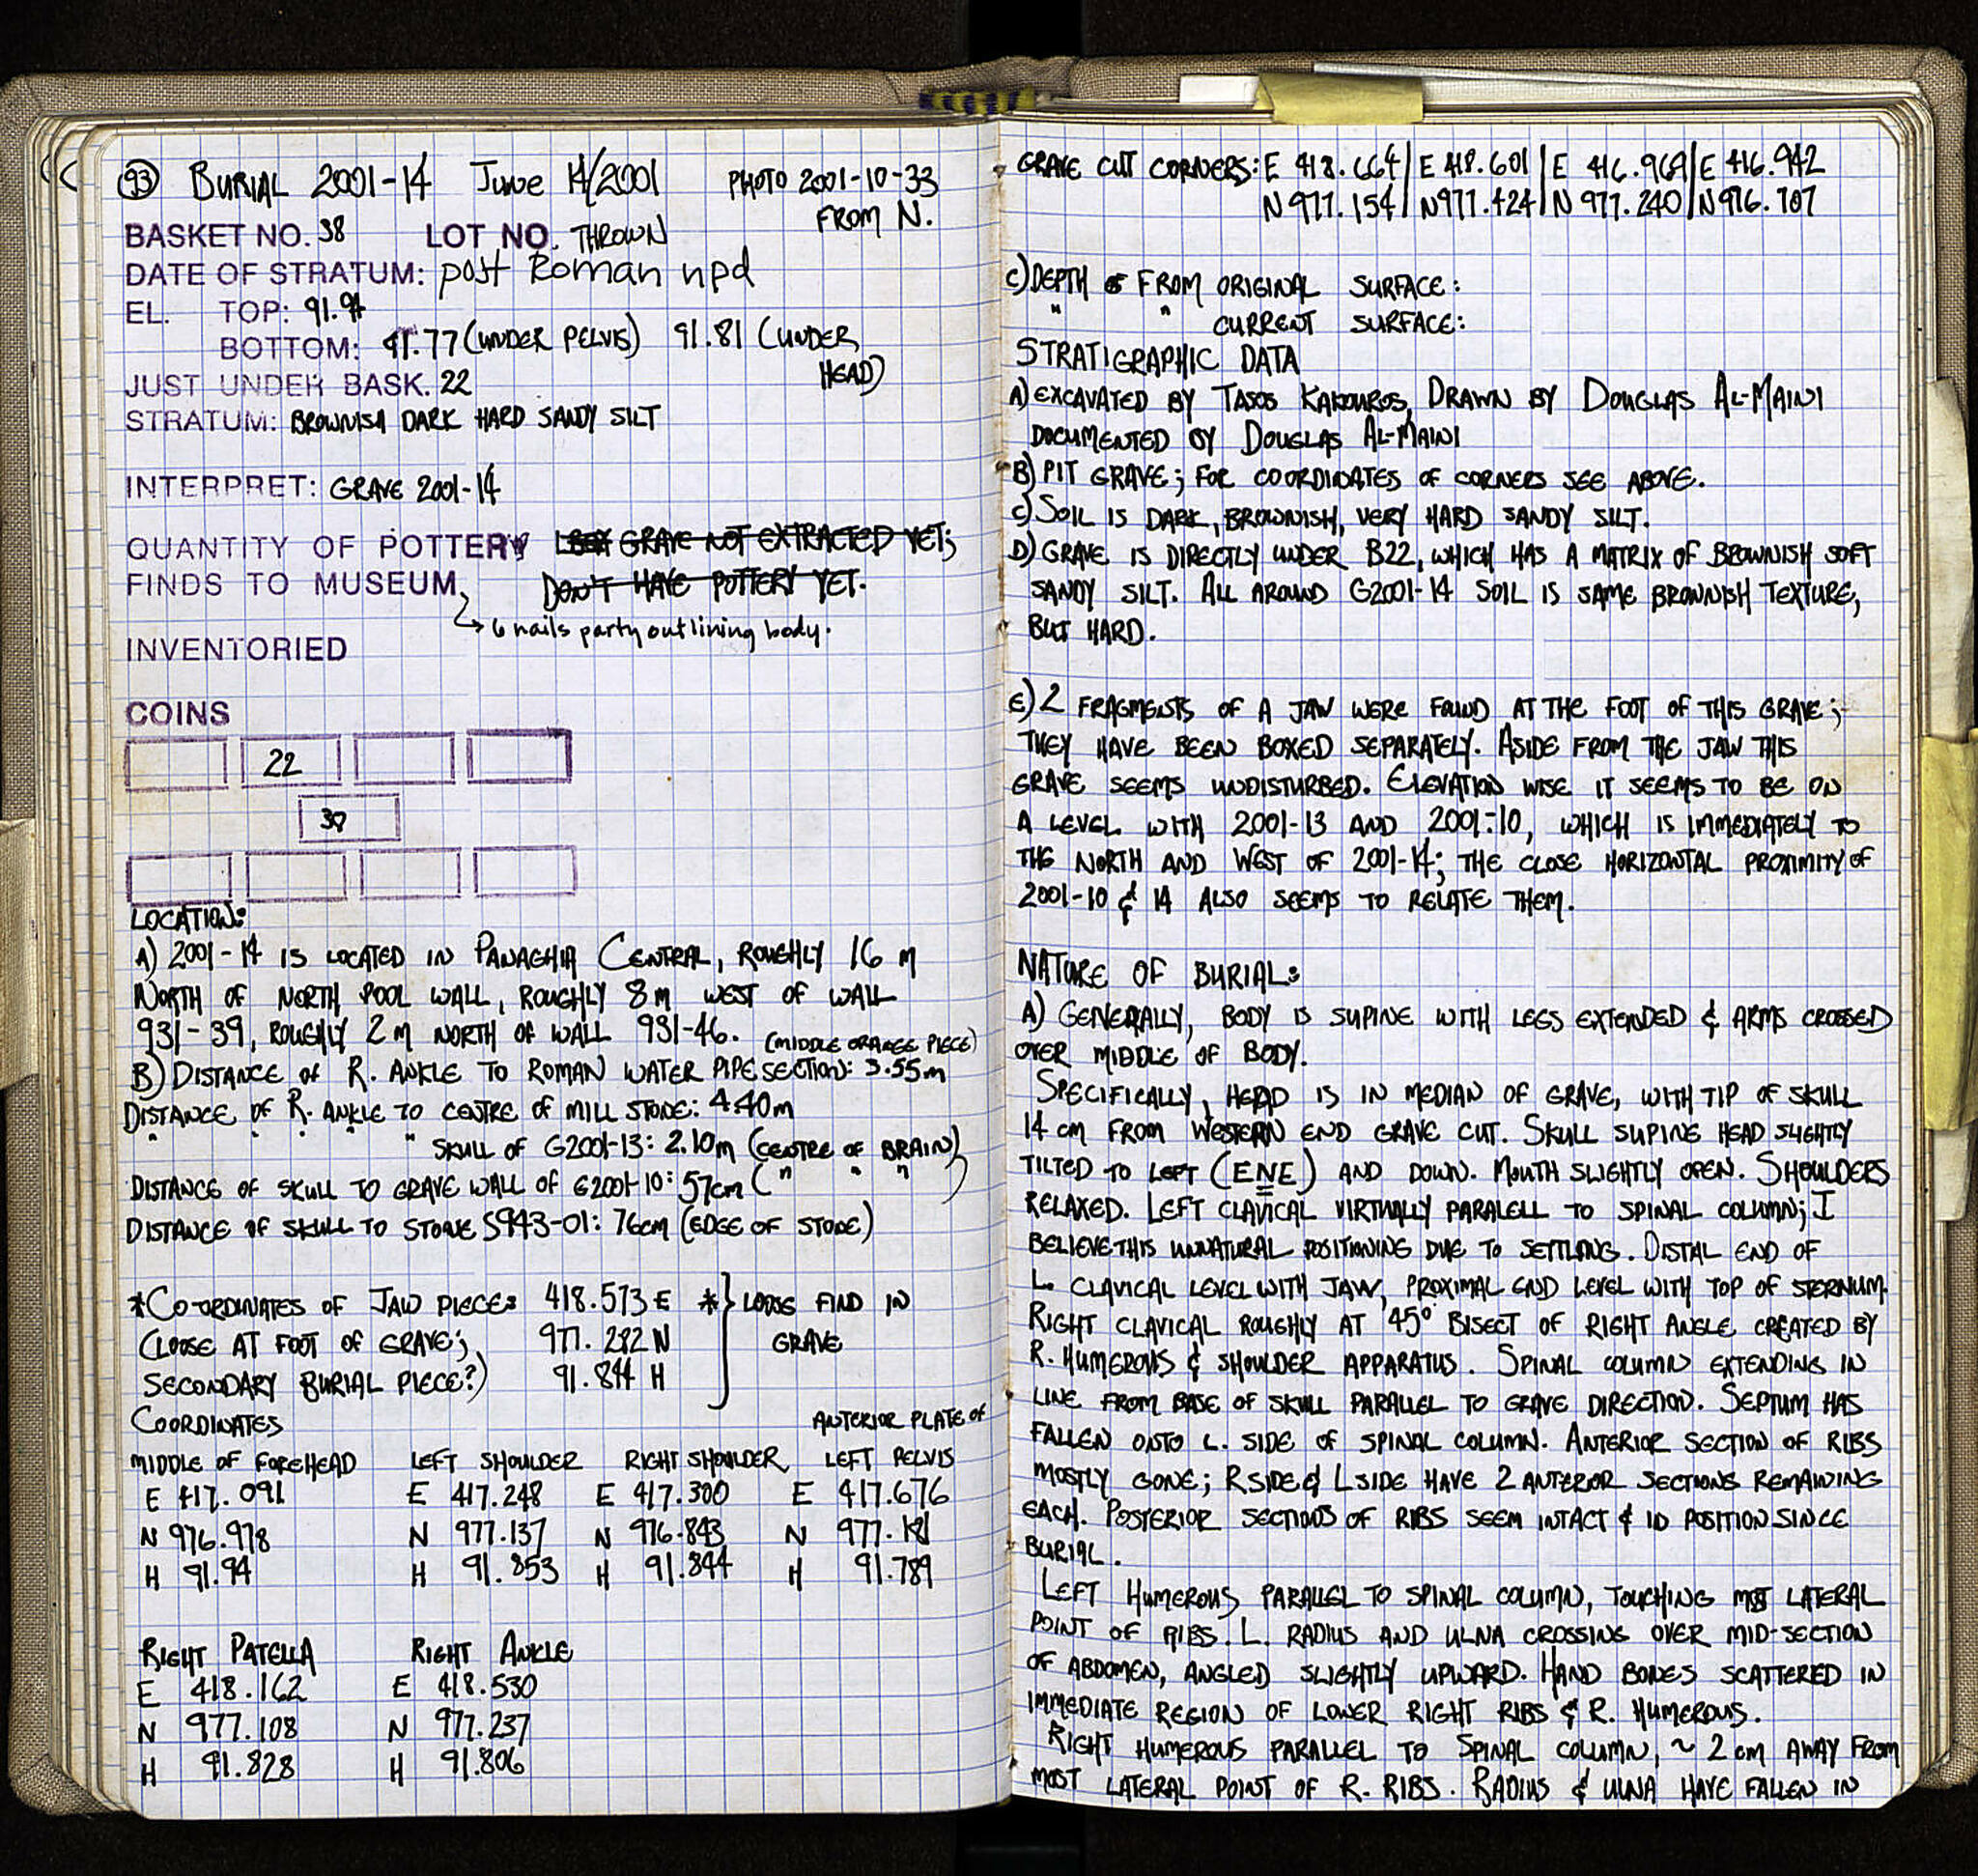 93 BURIAL 2001-14 June 14/2001 PHOTO 2001-10-33
FROM N.
BASKET NO. 38 LOT NO. THROWN
DATE OF STRATUM: post Roman npd
EL. TOP: 91.94
BOTTOM: 91.77 (UNDER PELVIS) 91.81 (UNDER
HEAD)
JUST UNDER BASK. 22
STRATUM: BROWNISH DARK HARD SANDY SILT
INTERPRET: GRAVE 2001-14
QUANTITY OF POTTERY GRAVE NOT EXTRACTED YET;
FINDS TO MUSEUM DON'T HAVE POTTERY YET.
→ 6 nails party outlining body.
INVENTORIED
COINS
22
38
LOCATION:
A) 2001-14 IS LOCATED IN PANAGHIA CENTRAL, ROUGHLY 16 M
NORTH OF NORTH POOL WALL, ROUGHLY 8M WEST OF WALL
931-39, ROUGHLY 2 M NORTH OF WALL 931-46. (MIDDLE ORANGE PIECE)
B) DISTANCE OF R. ANKLE TO ROMAN WATER PIPE SECTION: 3.55m
DISTANCE OF R. ANKLE TO CENTRE OF MILL STONE: 4.40m
" " " " " SKULL OF G2001-13: 2.10m (CENTRE OF BRAIN)
DISTANCE OF SKULL TO GRAVE WALL OF G2001-10: 57cm ( " " " )
DISTANCE OF SKULL TO STONE S943-01: 76cm (EDGE OF STONE)
*CO-ORDINATES OF JAW PIECE: 418.573 E * } LOOSE FIND IN
(LOOSE AT FOOT OF GRAVE; 977.282 N GRAVE
SECONDARY BURIAL PIECE?) 91.844 H
COORDINATES ANTERIOR PLATE OF
MIDDLE OF FOREHEAD LEFT SHOULDER RIGHT SHOULDER LEFT PELVIS
E 417.091 E 417.248 E 417.300 E 417.676
N 976.978 N 977.137 N 976.843 N 977.181
H 91.94 H 91.853 H 91.844 H 91.789
RIGHT PATELLA RIGHT ANKLE
E 418.162 E 418.530
N 977.108 N 977.237
H 91.828 H 91.806
GRAVE CUT CORNERS: E 418.664 | E 418.601 | E 416.969 | E 416.942
N 977.154 | N 977.424 | N 977.240 | N 976.787
C) DEPTH FROM ORIGINAL SURFACE:
" " CURRENT SURFACE:
STRATIGRAPHIC DATA
A) EXCAVATED BY TASOS KAKOUROS, DRAWN BY DOUGLAS AL-MAINI
DOCUMENTED BY DOUGLAS AL-MAINI
B) PIT GRAVE; FOR COORDINATES OF CORNERS SEE ABOVE.
C) SOIL IS DARK, BROWNISH, VERY HARD SANDY SILT.
D) GRAVE IS DIRECTLY UNDER B22, WHICH HAS A MATRIX OF BROWNISH SOFT
SANDY SILT. ALL AROUND G2001-14 SOIL IS SAME BROWNISH TEXTURE,
BUT HARD.
E) 2 FRAGMENTS OF A JAW WERE FOUND AT THE FOOT OF THIS GRAVE;
THEY HAVE BEEN BOXED SEPARATELY. ASIDE FROM THE JAW THIS
GRAVE SEEMS UNDISTURBED. ELEVATION WISE IT SEEMS TO BE ON
A LEVEL WITH 2001-13 AND 2001-10, WHICH IS IMMEDIATELY TO
THE NORTH AND WEST OF 2001-14; THE CLOSE HORIZONTAL PROXIMITY OF
2001-10 & 14 ALSO SEEMS TO RELATE THEM.
NATURE OF BURIAL:
A) GENERALLY, BODY IS SUPINE WITH LEGS EXTENDED & ARMS CROSSED
OVER MIDDLE OF BODY.
SPECIFICALLY, HEAD IS IN MEDIAN OF GRAVE, WITH TIP OF SKULL
14 cm FROM WESTERN END GRAVE CUT. SKULL SUPINE HEAD SLIGHTLY
TILTED TO LEFT (ENE) AND DOWN. MOUTH SLIGHTLY OPEN. SHOULDERS
RELAXED. LEFT CLAVICAL VIRTUALLY PARALELL TO SPINAL COLUMN; I
BELIEVE THIS UNNATURAL POSITIONING DUE TO SETTLING. DISTAL END OF
L. CLAVICAL LEVEL WITH JAW, PROXIMAL END LEVEL WITH TOP OF STERNUM.
RIGHT CLAVICAL ROUGHLY AT 45° BISECT OF RIGHT ANGLE CREATED BY
R. HUMEROUS & SHOULDER APPARATUS. SPINAL COLUMN EXTENDING IN
LINE FROM BASE OF SKULL PARALLEL TO GRAVE DIRECTION. SEPTUM HAS
FALLEN ONTO L. SIDE OF SPINAL COLUMN. ANTERIOR SECTION OF RIBS
MOSTLY GONE; R SIDE & L SIDE HAVE 2 ANTERIOR SECTIONS REMAINING
EACH. POSTERIOR SECTIONS OF RIBS SEEM INTACT & IN POSITION SINCE
BURIAL.
LEFT HUMEROUS PARALLEL TO SPINAL COLUMN, TOUCHING MOST LATERAL
POINT OF RIBS. L. RADIUS AND ULNA CROSSING OVER MID-SECTION
OF ABDOMEN, ANGLED SLIGHTLY UPWARD. HAND BONES SCATTERED IN
IMMEDIATE REGION OF LOWER RIGHT RIBS & R. HUMEROUS.
RIGHT HUMEROUS PARALLEL TO SPINAL COLUMN, ~ 2 cm AWAY FROM
MOST LATERAL POINT OF R. RIBS. RADIUS & ULNA HAVE FALLEN IN